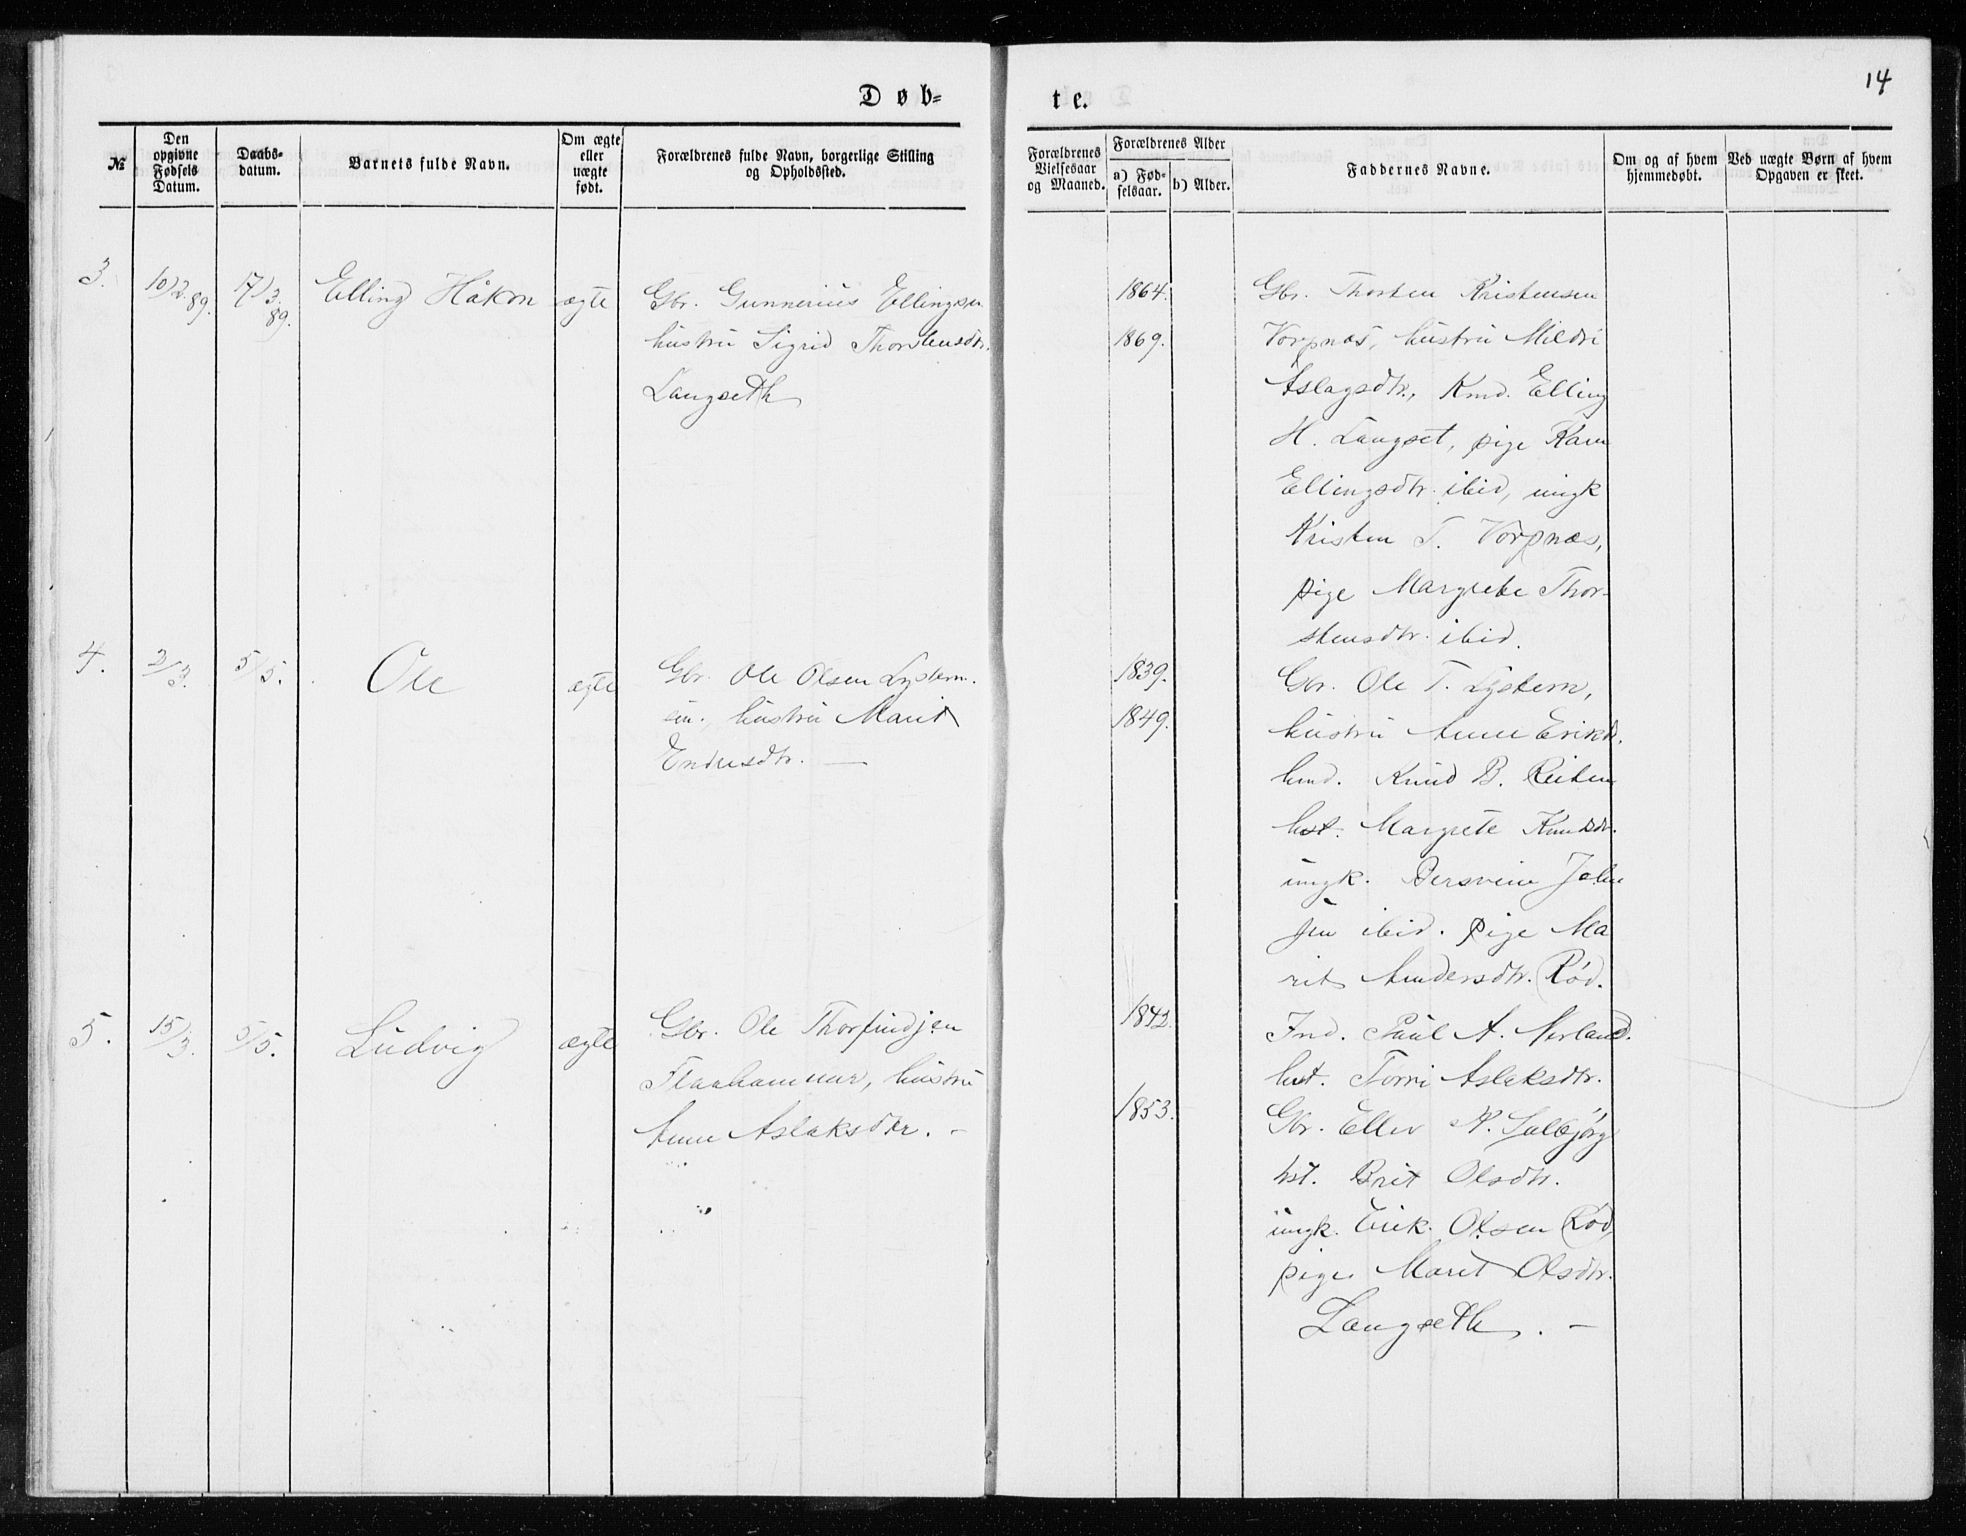 14
Døb=
te.
№
Den opgivne Fødsels Datum.
Daabs-datum.
Barnets fulde Navn.
Om ægte eller uægte født.
Forældrenes fulde Navn, borgerlige Stilling og Opholdssted.
Forældrenes Vielsesaar og Maaned.
Forældrenes Alder
a) Fød-selsaar.
b) Alder.
Faddernes Navne.
Om og af hvem hjemmedøbt.
Ved uægte Børn af hvem Opgaven er skeet.
3.
10/2 89.
17/3 89.
Elling Håkon
ægte
Gbr. Gunnerius Ellingsen
hustru Sigrid Thorstensdtr.
Langseth
1864.
1869.
Gbr. Thorsten Kristensen
Vorpnæs, hustru Mildri
Aslagsdtr., Kmd. Elling
H. Langset, pige Karn
Ellingsdtr. ibid, ungk
Kristen T. Vorpnæs,
pige Margrete Thor-
stensdtr. ibid.
4.
2/3.
5/5.
Ole
ægte
Gbr. Ole Olsen Lystern.
hustru Marit
Endresdtr. —
1839.
1849.
Gbr. Ole T. Lystern,
hustru Anne Eriksd.
Knud B. Reiten
hst. Margrete Knudsdtr.
ungk. Bersvein John
sen ibid. pige Ma
rit Andersdtr. Rød.
5.
15/3.
5/5.
Ludvig
ægte
Gbr. Ole Thorfindsen
Flaahammer, hustru
Anne Aslaksdtr. -
1842.
1853.
Ind. Paul A. Nerland.
hst. Torri Aslaksdtr.
Gbr. Ellev N. Solbjørg
hst. Brit Olsdtr.
ungk. Erik Olsen Rød,
pige Marit Olsdtr.
Langseth. —